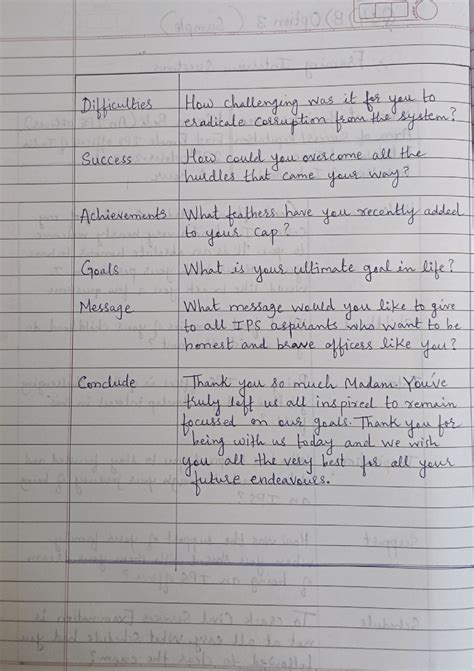 Difficulties How challenging was it for you to
eradicate corruption from the system?
Success How could you overcome all the
hurdles that came your way?
Achievements What feathess have you recently added
to your cap?
Goals What is your ultimate goal in life?
Message What message would you like to give
to all IPS aspirants who want to be
honest and brave officers like you?
Conclude Thank you so much Madam. You've
truly left us all inspired to remain
focussed on our goals. Thank you for
being with us today and we wish
you all the very best for all your
future endeavours.